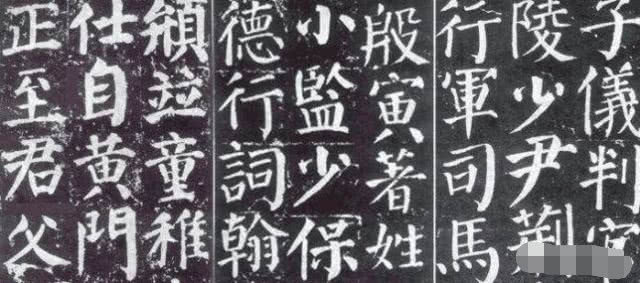 子儀判
陵少尹荆
行軍司馬
殷寅著姓
小監少保
德行詞翰
並童稚
仕自黃門
正至君父